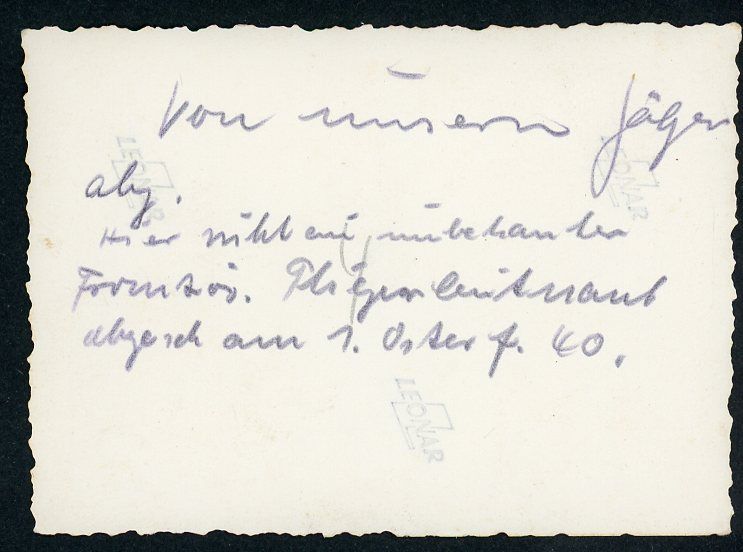 von unsern Jäger
abg.
Hier ruht ein unbekannter
Französ. Fliegerleutnant
abgesch am 1. Osterf. 40.
LEONAR
LEONAR
LEONAR